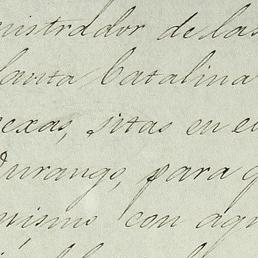 nistrador de las
Santa Catalina
nexas, sitas en el
Durango, para q
mismo con aqu